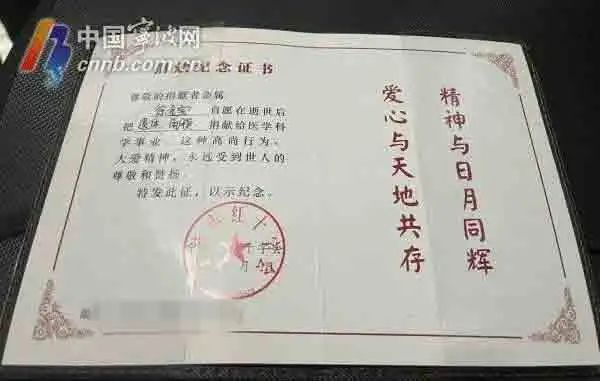 中国宁波网
cnnb.com.cn
捐献纪念证书
尊敬的捐献者亲属
自愿在逝世后
把 遗体 角膜 捐献给医学科
学事业 这种高尚行为、
大爱精神,永远受到世人的
尊敬和赞扬
特发此证,以示纪念。
精神与日月同辉
爱心与天地共存